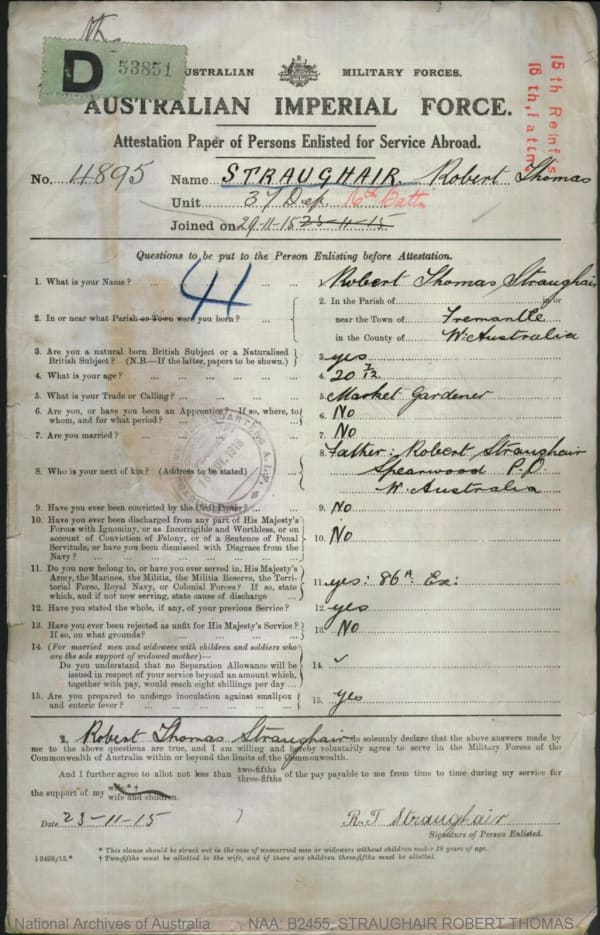 D 53851
AUSTRALIAN MILITARY FORCES.
AUSTRALIAN IMPERIAL FORCE.
15th Reinfs
16th
Attestation Paper of Persons Enlisted for Service Abroad.
No. 4895 Name STRAUGHAIR Robert Thomas
Unit 37 Dep 16th Battn
Joined on 29-11-15 23-11-15
Questions to be put to the Person Enlisting before Attestation.
1. What is your Name? ... Robert Thomas Straughair
2. In or near what Parish or Town were you born? ... 2. In the Parish of in or
near the Town of Fremantle
in the County of W. Australia
3. Are you a natural born British Subject or a Naturalised
British Subject? (N.B.—If the latter, papers to be shown.) 3. yes
4. What is your age? ... 4. 20 7/12
5. What is your Trade or Calling? ... 5. Market Gardener
6. Are you, or have you been an Apprentice? If so, where, to
whom, and for what period? ... 6. No
7. Are you married? ... 7. No
8. Who is your next of kin? (Address to be stated) 8. Father: Robert Straughair
Spearwood P.O.
W. Australia
9. Have you ever been convicted by the Civil Power? ... 9. No
10. Have you ever been discharged from any part of His Majesty's
Forces with Ignominy, or as Incorrigible and Worthless, or on
account of Conviction of Felony, or of a Sentence of Penal
Servitude, or have you been Dismissed with Disgrace from the
Navy? ... 10. No
11. Do you now belong to, or have you ever served in, His Majesty's
Army, the Marines, the Militia, the Militia Reserve, the Terri-
torial Force, Royal Navy, or Colonial Forces? If so, state
which, and if not now serving, state cause of discharge 11. yes: 86A. Ex:
12. Have you stated the whole, if any, of your previous Service? 12. yes
13. Have you ever been rejected as unfit for His Majesty's Service?
If so, on what grounds? 13. No
14. (For married men and widowers with children and soldiers who
are the sole support of widowed mother)—
Do you understand that no Separation Allowance will be
issued in respect of your service beyond an amount which,
together with pay, would reach eight shillings per day ... 14. ✓
15. Are you prepared to undergo inoculation against smallpox
and enteric fever? ... 15. Yes
I, Robert Thomas Straughair do solemnly declare that the above answers made by
me to the above questions are true, and I am willing and hereby voluntarily agree to serve in the Military Forces of the
Commonwealth of Australia within or beyond the limits of the Commonwealth.
And I further agree to allot not less than two-fifths three-fifths of the pay payable to me from time to time during my service for
the support of my wife*† wife and children.
Date 23-11-15 R. T Straughair
Signature of Person Enlisted.
* This clause should be struck out in the case of unmarried men or widowers without children under 18 years of age.
† Two-fifths must be allotted to the wife, and if there are children three-fifths must be allotted.
National Archives of Australia NAA: B2455, STRAUGHAIR ROBERT THOMAS